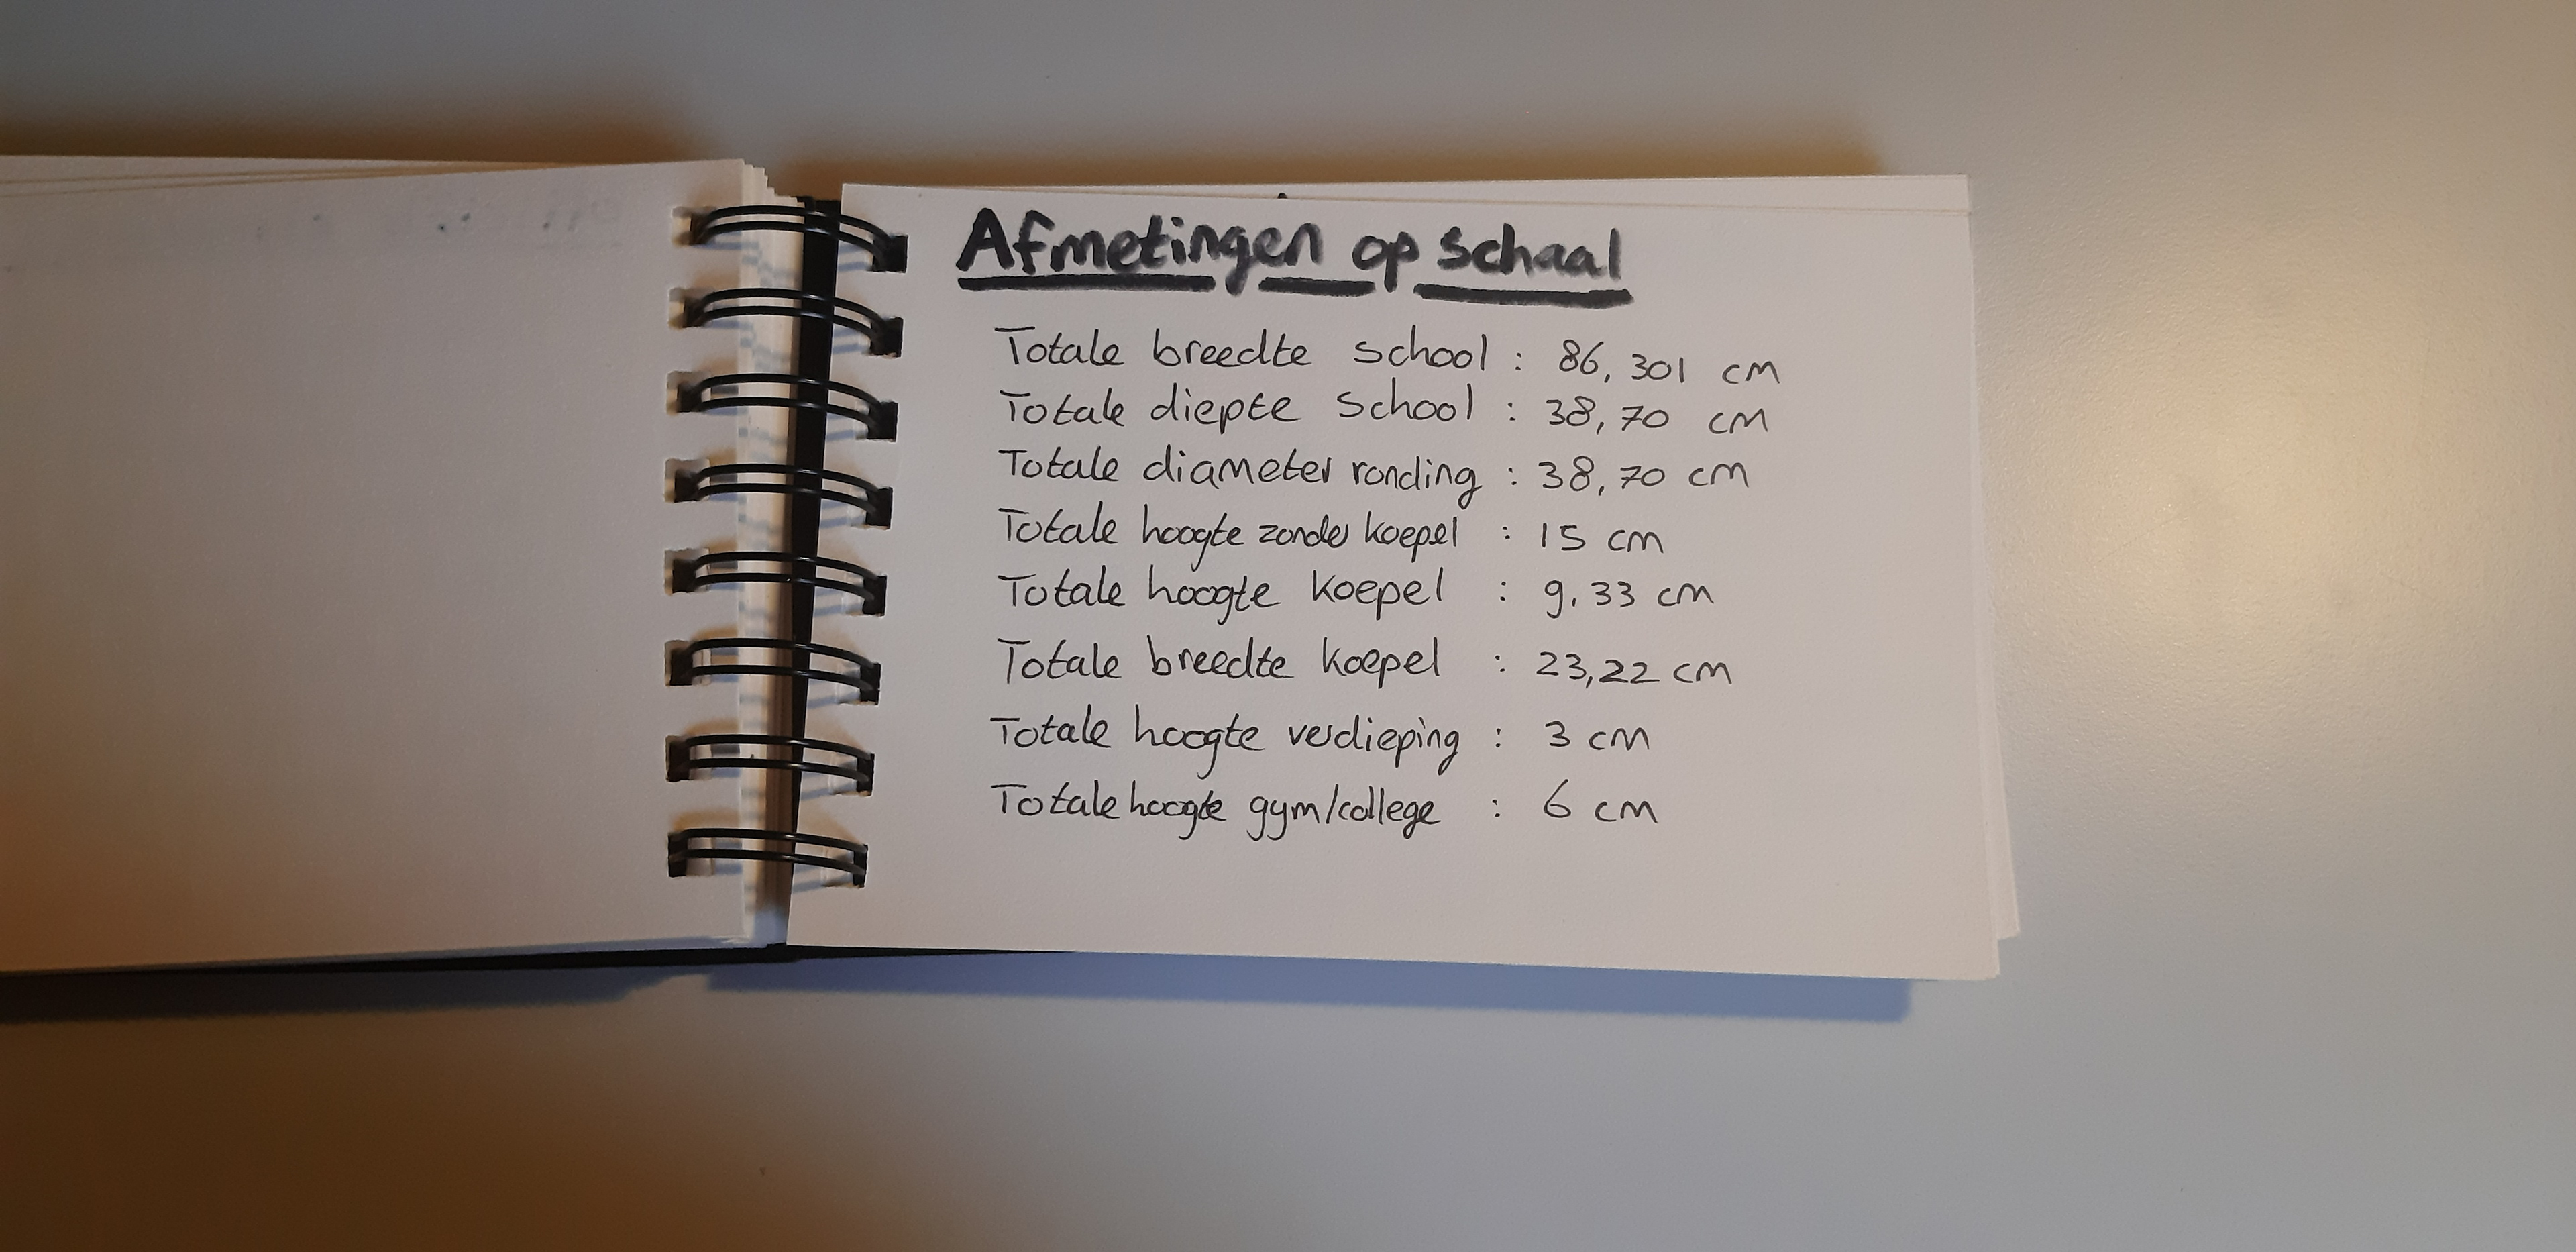 Afmetingen op schaal
Totale breedte school : 86,301 cm
Totale diepte school : 38,70 cm
Totale diameter ronding : 38,70 cm
Totale hoogte zonder koepel : 15 cm
Totale hoogte koepel : 9,33 cm
Totale breedte koepel : 23,22 cm
Totale hoogte verdieping : 3 cm
Totale hoogte gym/college : 6 cm